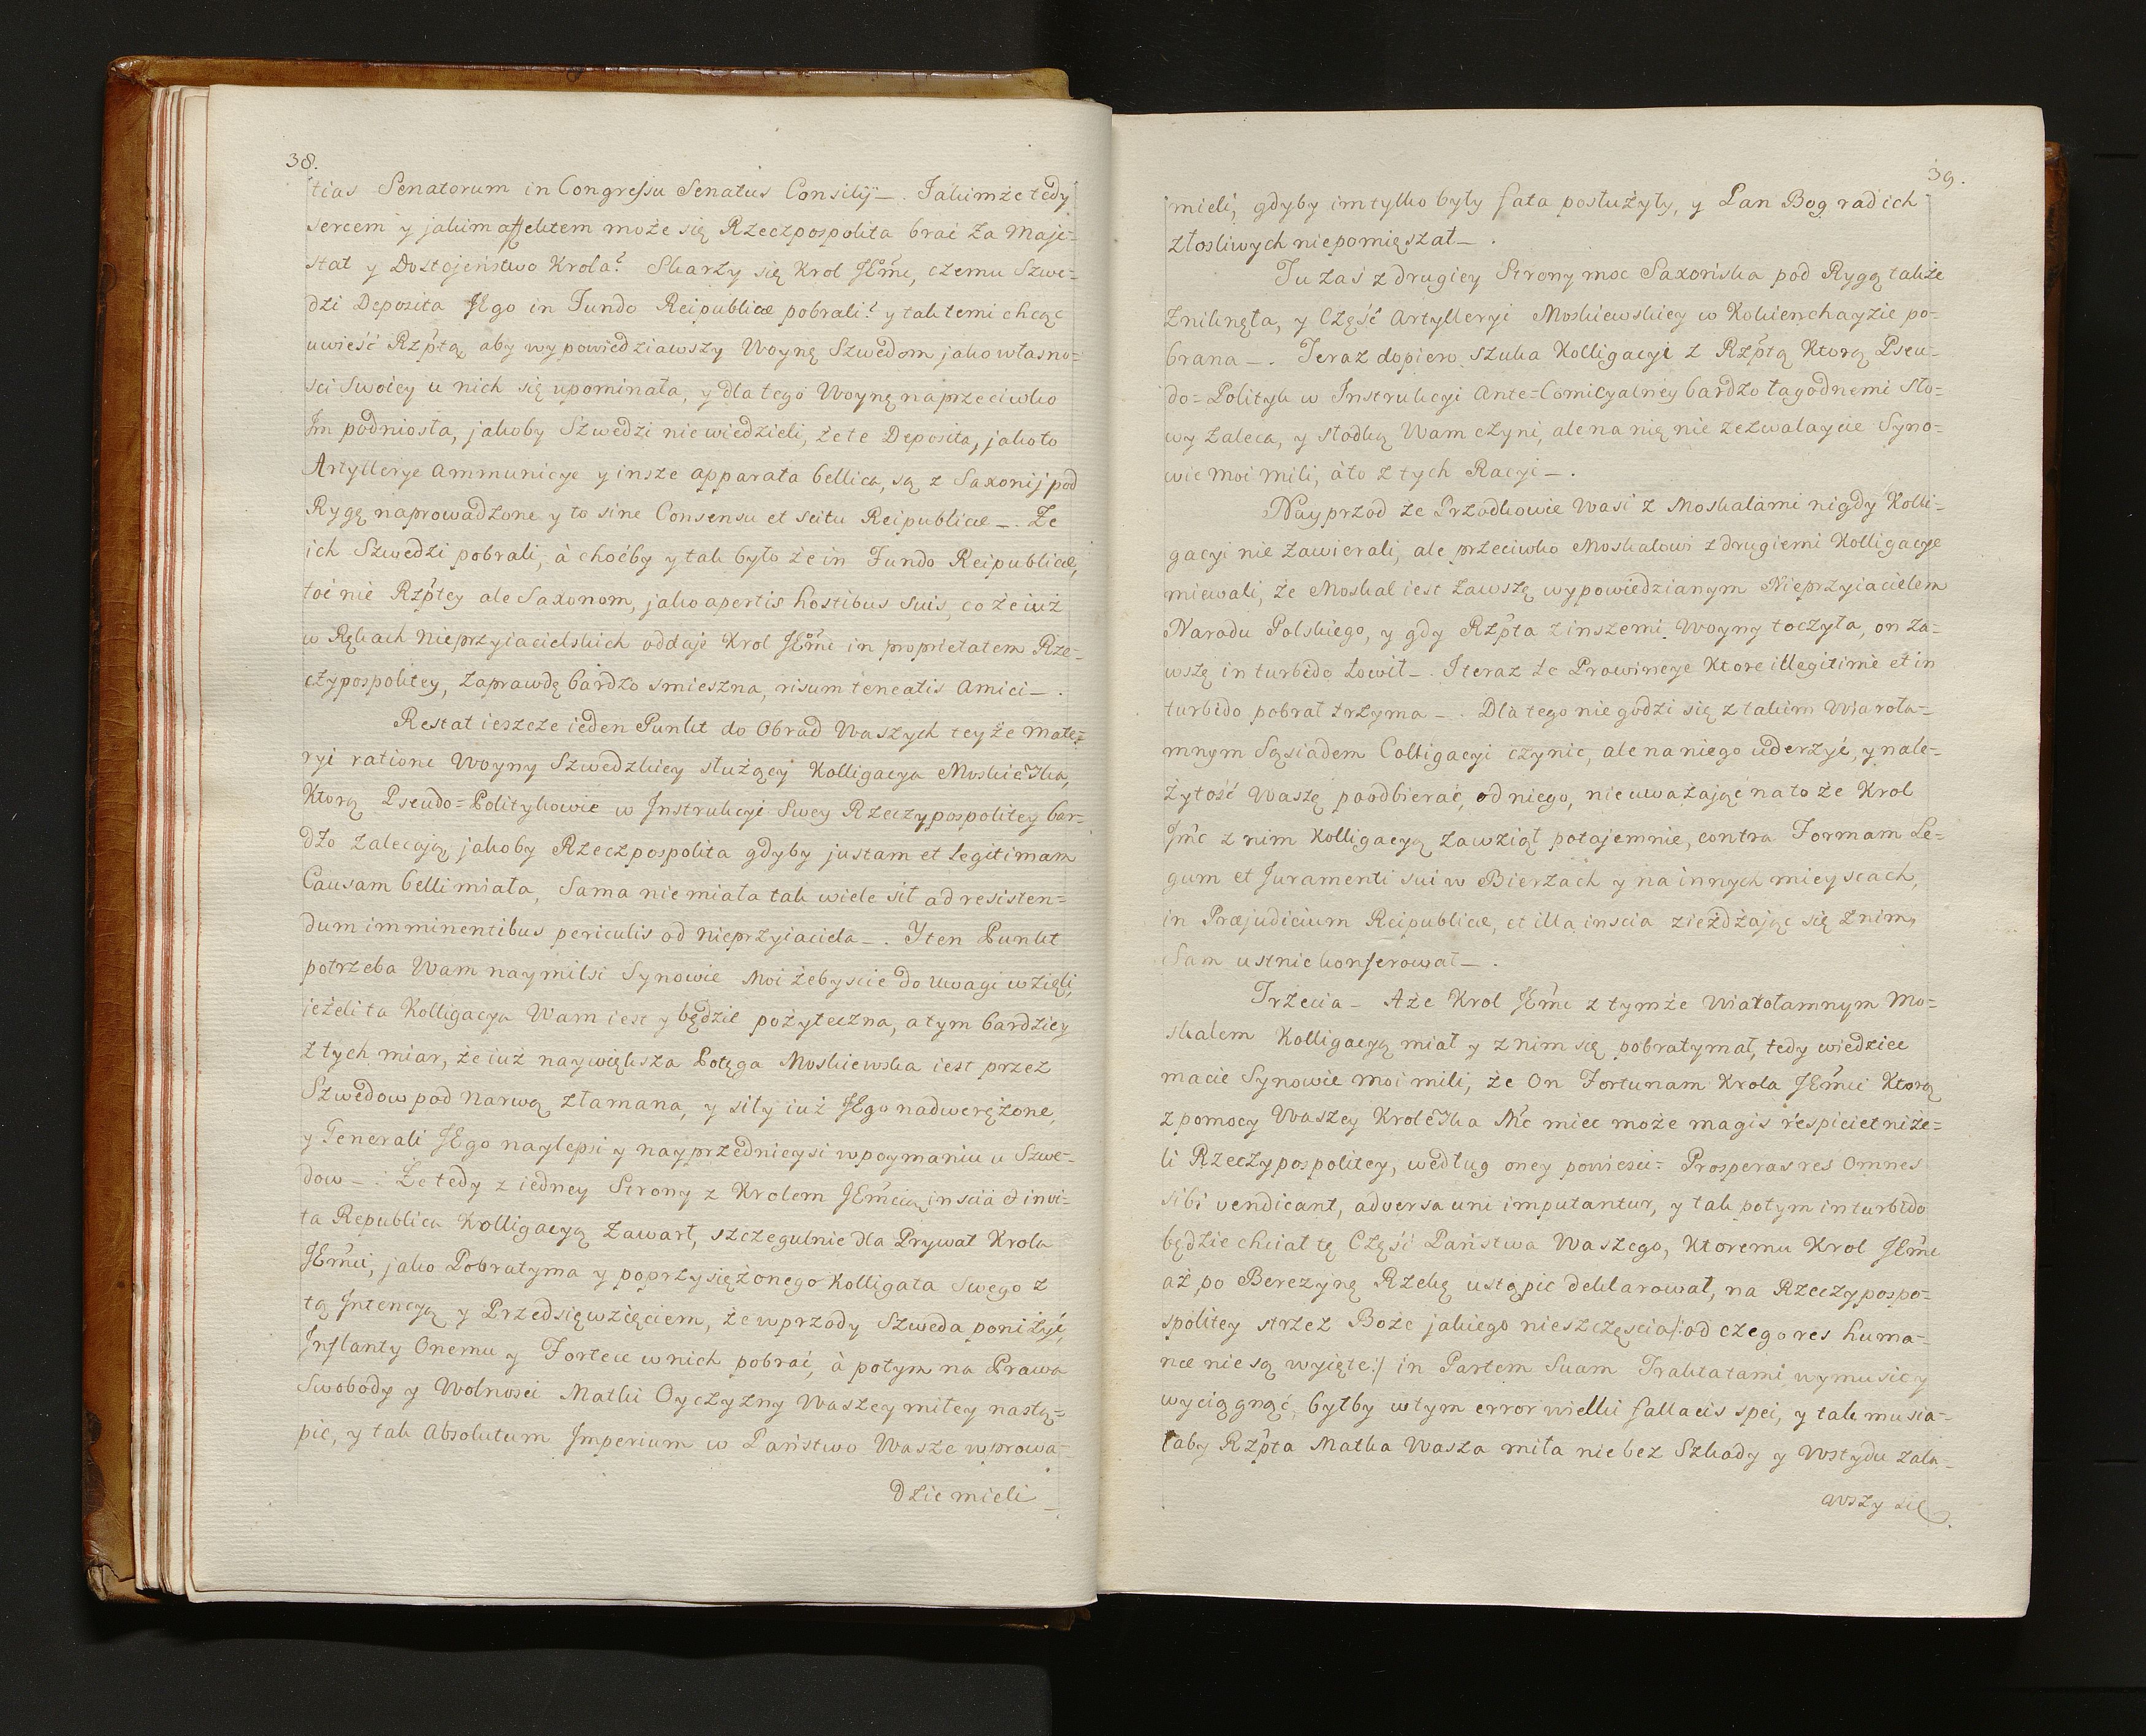 38.
tias Senatorum in Congressu Senatus Consilij —. Jakimże tedy
sercem y jakim affektem może się Rzeczpospolita brać za Maje=
stat y Dostojeństwo Krola? Skarzy się Krol JEmć, czemu Szwe=
dzi Deposita JEgo in Fundo Reipublicæ pobrali? y tak temi chcąc
uwieść Rzptą aby wypowiedziawszy Woynę Szwedom jako własno=
sci Swoicy u nich się upominała, y dla tego Woynę naprzeciwko
Jm podniosła, jakoby Szwedzi nie wiedzieli, że te Deposita, jako to
Artyllerye Ammunicye y insze apparata bellica, są z Saxonij pod
Rygę naprowadzone y to sine Consensu et scitu Reipublicæ —. Że
ich Szwedzi pobrali, à choćby y tak było że in Fundo Reipublicæ,
toć nie Rzptey ale Saxonom, jako apertis hostibus suis, co że iuż
w Rękach Nieprzyiacielskich oddaje Krol JEmć in proprietatem Rze=
czypospolitey, zaprawdę bardzo smieszna, risum teneatis Amici —.
Restat ieszcze ieden Punkt do Obrad Waszych teyże Mate=
ryi ratione Woyny Szwedzkiey służący Kolligacya Moskieska,
Ktorą Pseudo=Politykowie w Jnstrukcyi Swey Rzeczypospolitey bar=
dzo zalecają, jakoby Rzeczpospolita gdyby justam et legitimam
Causam belli miała, Sama nie miała tak wiele sił ad resisten=
dum imminentibus periculis od Nieprzyiaciela —. Y ten Punkt
potrzeba Wam naymilsi Synowie Moi żebyscie do Uwagi wzięli,
ieżeli ta Kolligacya Wam iest y będzie pożyteczna, a tym bardziey
z tych miar, że iuż naywiększa Potęga Moskiewska iest przez
Szwedow pod Narwą złamana, y siły iuż JEgo nadwerężone,
y Generali JEgo naylepsi y nayprzednieysi w poymaniu u Szwe=
dow —: Że tedy z iedney Strony z Krolem JEmcią inscia & invi=
ta Republica Kolligacyą zawarł, szczegulnie dla Prywat Krola
JEmci, jako Pobratyma y poprzysiężonego Kolligata Swego z
tą Jntencyą y Przedsięwzięciem, że wprzody Szweda poniżyć,
Jnflanty Onemu y Fortece w nich pobrać, à potym na Prawa
Swobody y Wolnosci Matki Oyczyzny Waszey miłey nastą=
pić, y tak Absolutum Jmperium w Państwo Wasze wprowa=
dzić mieli
39.
mieli, gdyby im tylko były fata posłużyły, y Pan Bog rad ich
złosliwych niepomięszał —.
Tu zaś z drugiey Strony moc Saxońska pod Rygą także
zniknęła, y Część Artylleryi Moskiewskiey w Kokienhayzie po=
brana —. Teraz dopiero szuka Kolligacyi z Rzptą Ktorą Pseu=
do=Polityk w Jnstrukcyi Ante=Comicyalney bardzo łagodnemi Sło=
wy zaleca, y słodką Wam czyni, ale na nię nie zezwalaycie Syno=
wie Moi mili, à to z tych Racyi —.
Nayprzod że Przodkowie Wasi z Moskalami nigdy Kolli=
gacyi nie zawierali, ale przeciwko Moskalowi z drugiemi Kolligacye
miewali, że Moskal iest zawszę wypowiedzianym Nieprzyiacielem
Narodu Polskiego, y gdy Rzpta z inszemi Woyny toczyła, on za=
wszę in turbido łowił —. I teraz te Prowincye Ktore illegitimè et in
turbido pobrał trzyma —. Dla tego nie godzi się z takim Wiaroła=
mnym Sąsiadem Colligacyi czynic, ale na niego uderzyć, y nale=
żytość Waszę poodbierać, od niego, nie uważając na to że Krol
Jmć z nim Kolligacyą zawziął potajemnie, contra Formam Le=
gum et Juramenti sui w Bierzach y na innych mieyscach,
in Præjudicium Reipublicæ, et illa inscia zieżdżając się z nim,
Sam ustnie konferował —.
Trzecia — Aże Krol JEmć z tymże Wiarołamnym Mo=
skalem Kolligacyą miał y z nim się pobratymał, tedy wiedziec
macie Synowie moi mili, że On Fortunam Krola JEmci Ktorą
z pomocy Waszey Kroleska Mć miec może magis respiciet niże=
li Rzeczypospolitey, według oney powiesci= Prosperas res Omnes
sibi vendicant, adversa uni imputantur, y tak potym in turbido
będzie chciał tę Część Państwa Waszego, Ktoremu Krol JEmć
aż po Berezynę Rzekę ustąpic deklarował, na Rzeczypospo=
spolitey strzez Boże jakiego nieszczęscia /: od czego res huma=
næ nie są wyięte :/ in Partem Suam Traktatami wymusic y
wyciągnąć, byłby w tym error wielki fallacis spei, y tak musia=
łaby Rzpta Matka Wasza miła nie bez Szkody y Wstydu zala=
wszy się